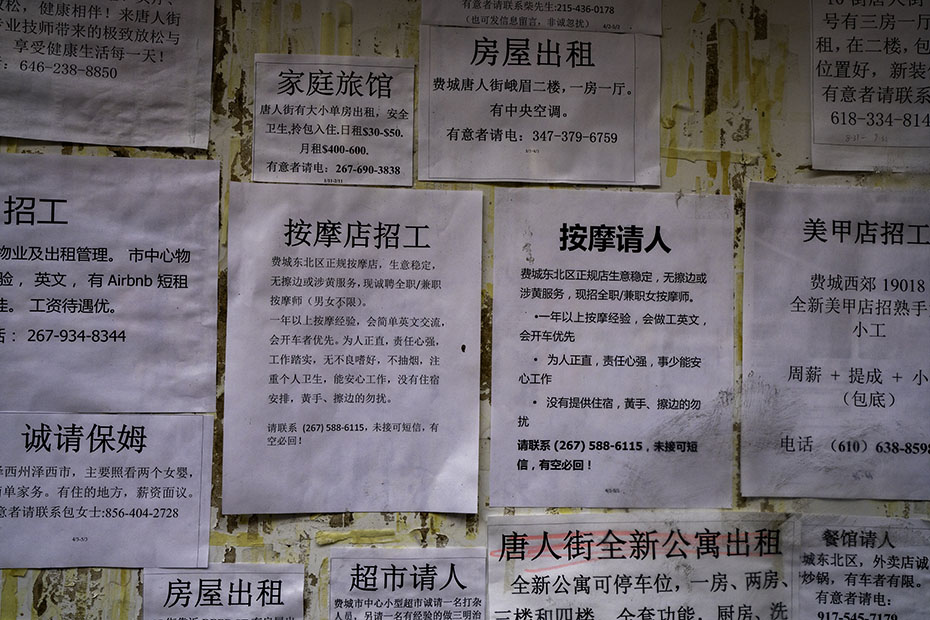 放松，健康相伴！来唐人街
专业技师带来的极致放松与
享受健康生活每一天！
：646-238-8850
家庭旅馆
唐人街有大小单房出租，安全
卫生,拎包入住.日租$30-$50.
月租$400-600.
有意者请电：267-690-3838
1/11-2/11
有意请联系柴先生:215-436-0178
（也可发信息留言，非诚勿扰）
房屋出租
费城唐人街峨眉二楼，一房一厅。
有中央空调。
有意者请电：347-379-6759
号有三房一厅
租，在二楼，包
位置好，新装
有意者请联系
618-334-814
招工
物业及出租管理。 市中心物
验， 英文， 有 Airbnb 短租
佳。 工资待遇优。
： 267-934-8344
按摩店招工
费城东北区正规按摩店，生意稳定，
无擦边或涉黄服务，现诚聘全职/兼职
按摩师（男女不限）。
一年以上按摩经验，会简单英文交流，
会开车者优先。为人正直，责任心强，
工作踏实，无不良嗜好，不抽烟，注
重个人卫生，能安心工作，没有住宿
安排，黄手、擦边的勿扰。
请联系 (267) 588-6115，未接可短信，有
空必回！
按摩请人
费城东北区正规店生意稳定，无擦边或
涉黄服务，现招全职/兼职女按摩师。
•一年以上按摩经验，会做工英文，
会开车优先
• 为人正直，责任心强，事少能安
心工作
• 没有提供住宿，黄手、擦边的勿
扰
请联系 (267) 588-6115，未接可短
信，有空必回！
美甲店招工
费城西郊 19018
全新美甲店招熟手
小工
周薪 + 提成 + 小
（包底）
电话 （610）638-8598
诚请保姆
泽西州泽西市，主要照看两个女婴，
简单家务。有住的地方，薪资面议。
意者请联系包女士:856-404-2728
4/3-5/3
房屋出租
超市请人
费城市中心小型超市诚请一名打杂
人员，另请一名有经验的做三明治
唐人街全新公寓出租
全新公寓可停车位，一房、两房、
三楼和四楼，全套功能，厨房、洗
餐馆请人
城东北区，外卖店诚
炒锅，有车者有限。
有意者请电：
917-545-7179